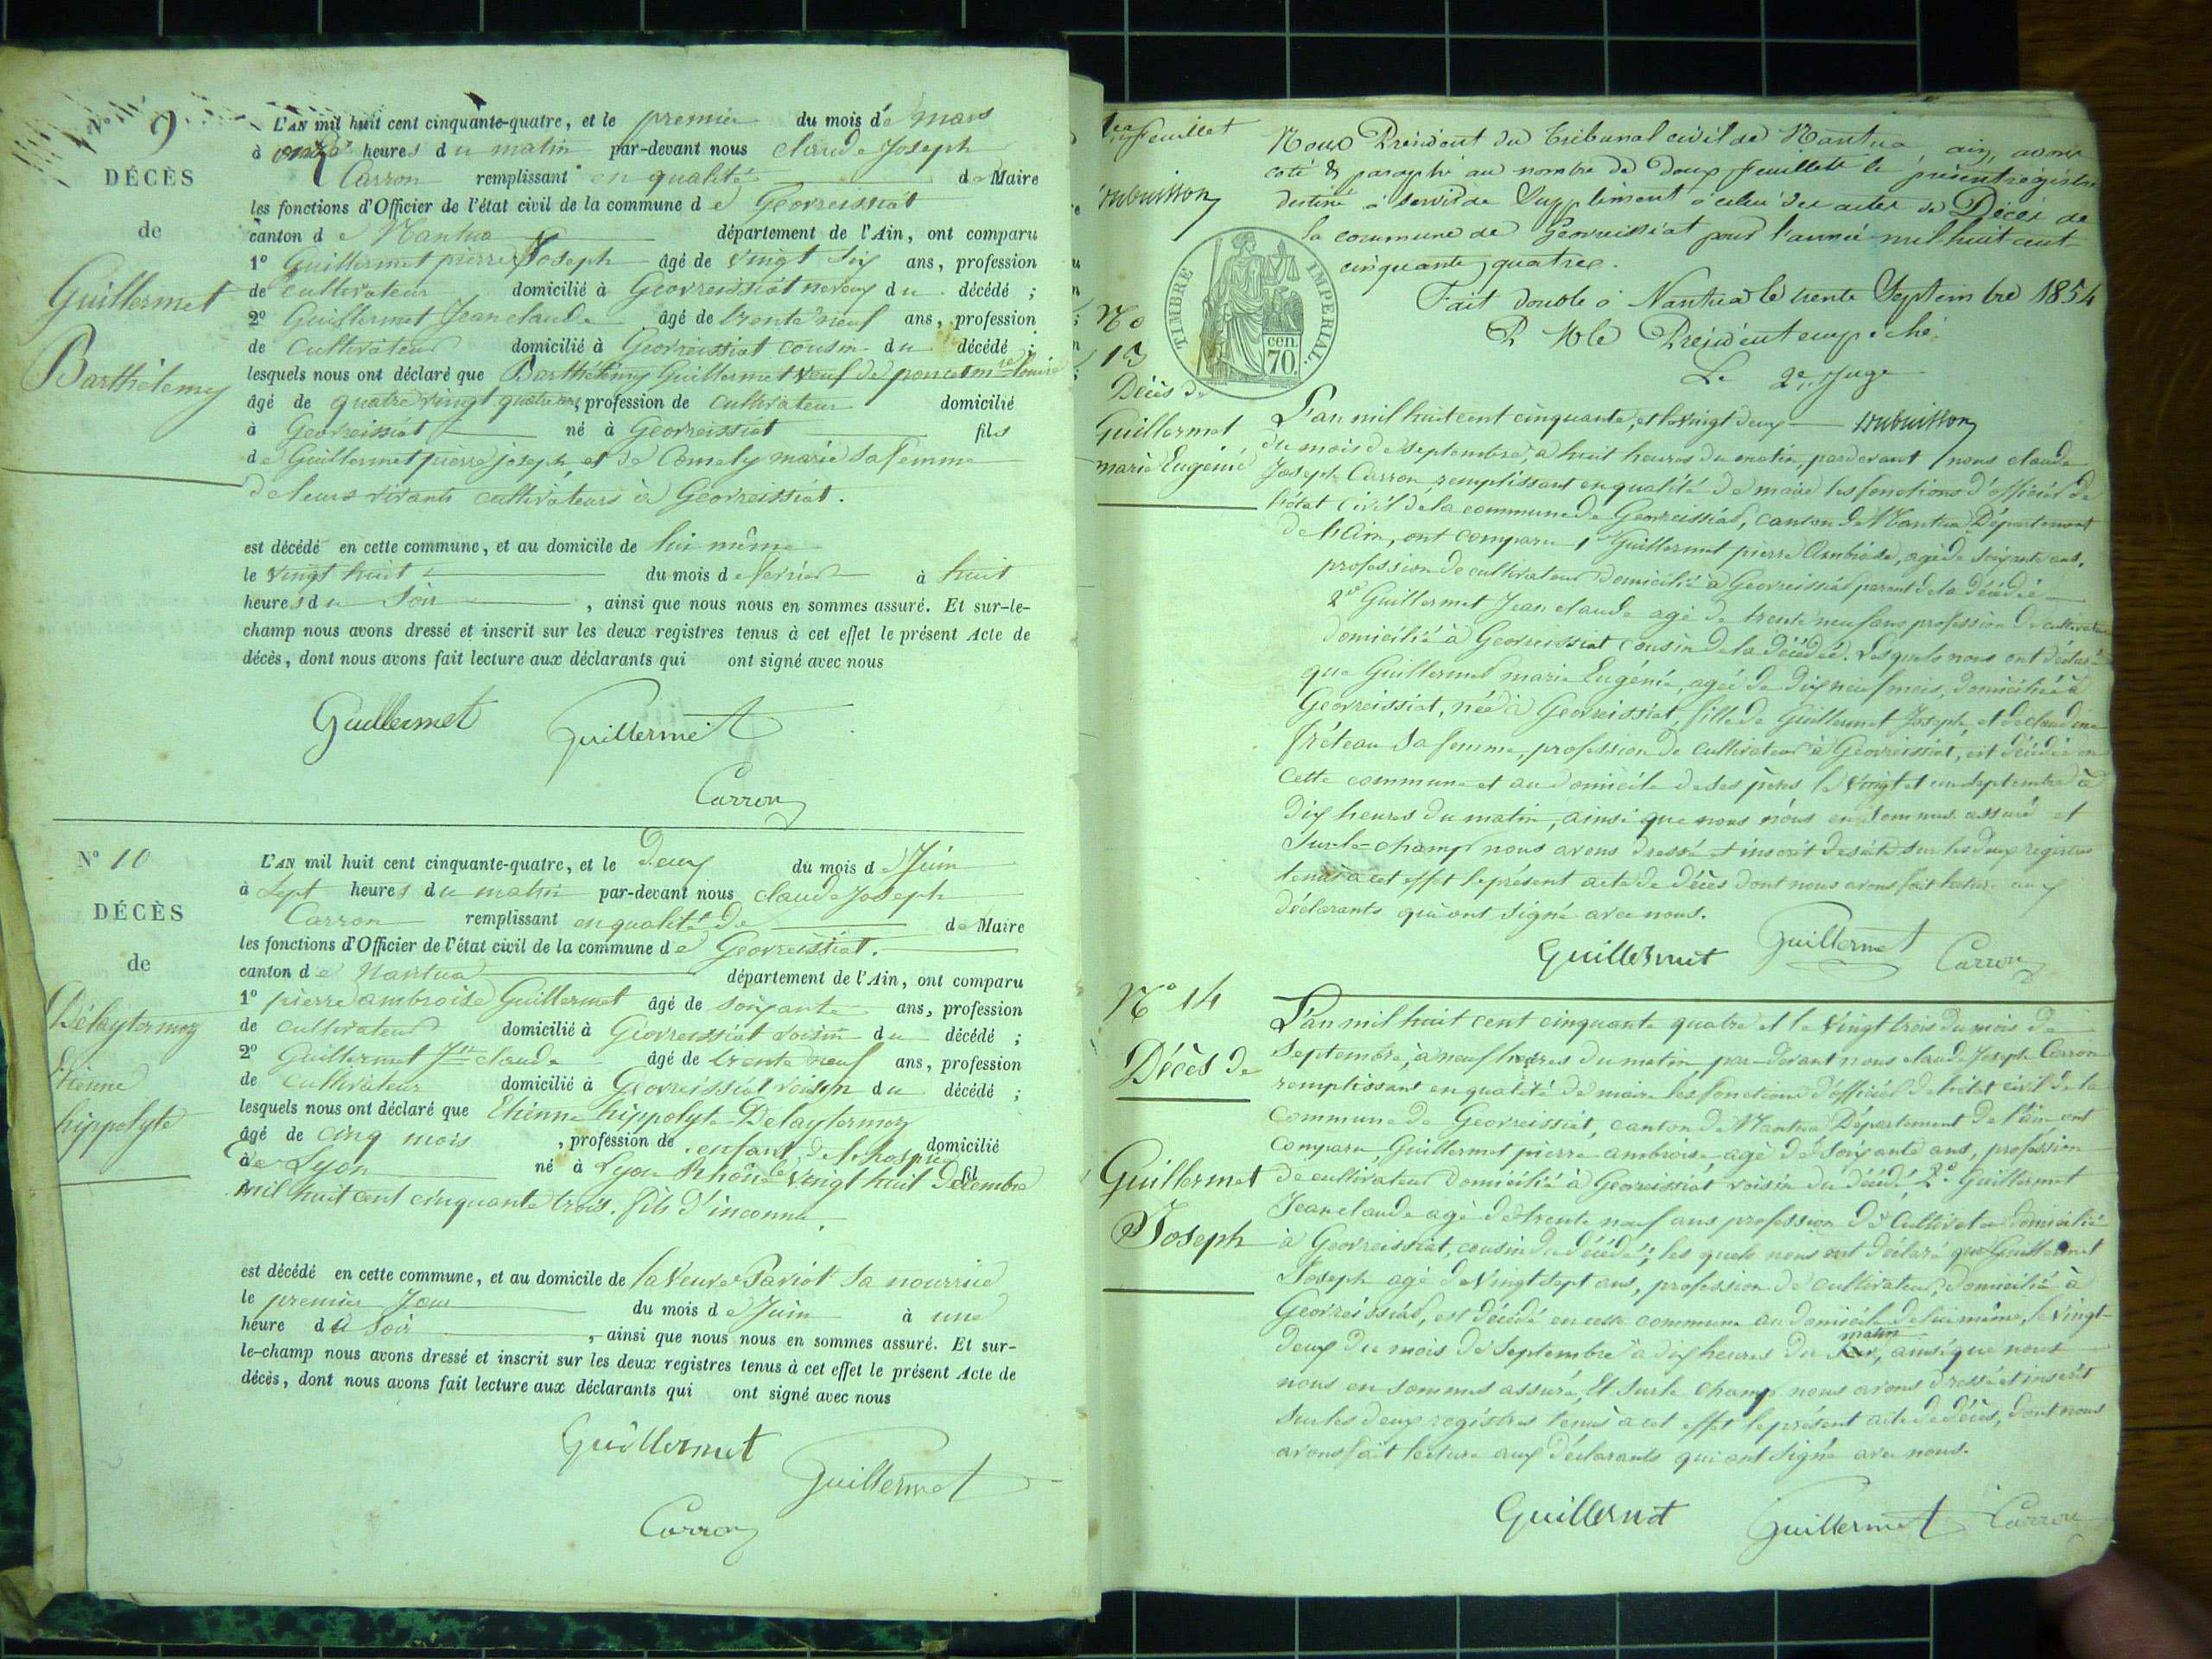 N° 9
DÉCÈS
de
Guillermet
Barthélemy
L'AN mil huit cent cinquante-quatre, et le premier du mois de mars
à onze heures du matin par-devant nous claude Joseph
Carron remplissant en qualité de Maire
les fonctions d'Officier de l'état civil de la commune de Géovreissiat
canton de Nantua département de l'Ain, ont comparu
1° Guillermet pierre Joseph âgé de vingt six ans, profession
de cultivateur domicilié à Géovreissiat neveux du décédé ;
2° Guillermet Jean claude âgé de trente neuf ans, profession
de cultivateur domicilié à Géovreissiat cousin du décédé ;
lesquels nous ont déclaré que Barthélemy Guillermet veuf de poncet mie louise
âgé de quatre vingt quatre ans, profession de cultivateur domicilié
à Géovreissiat né à Géovreissiat fils
de Guillermet pierre joseph et de Comely marie sa femme
de leurs vivants cultivateurs à Géovreissiat.
est décédé en cette commune, et au domicile de lui même
le vingt huit du mois de février à huit
heures du soir , ainsi que nous nous en sommes assuré. Et sur-le-
champ nous avons dressé et inscrit sur les deux registres tenus à cet effet le présent Acte de
décès, dont nous avons fait lecture aux déclarants qui ont signé avec nous
Guillermet Guillermet
Carron
N° 10
DÉCÈS
de
Délaytermoz
Etienne
hippolyte
L'AN mil huit cent cinquante-quatre, et le deux du mois de Juin
à sept heures du matin par-devant nous claude Joseph
Carron remplissant en qualité de de Maire
les fonctions d'Officier de l'état civil de la commune de Géovreissiat.
canton de Nantua département de l'Ain, ont comparu
1° pierre ambroise Guillermet âgé de soixante ans, profession
de cultivateur domicilié à Géovreissiat voisin du décédé ;
2° Guillermet Jn claude âgé de trente neuf ans, profession
de cultivateur domicilié à Géovreissiat voisin du décédé ;
lesquels nous ont déclaré que Etienne hippolyte Delaytermoz
âgé de cinq mois , profession de enfant de l'hospice domicilié
à de Lyon né à Lyon Rhône le vingt huit décembre fil
mil huit cent cinquante trois. fils d'inconnu.
est décédé en cette commune, et au domicile de la veuve Pariot sa nourrice
le premier Jour du mois de Juin à une
heure du soir , ainsi que nous nous en sommes assuré. Et sur-
le-champ nous avons dressé et inscrit sur les deux registres tenus à cet effet le présent Acte de
décès, dont nous avons fait lecture aux déclarants qui ont signé avec nous
Guillermet
Guillermet
Carron
1er feuillet
Dubuisson
Nous Président du Tribunal civil de Nantua, ain, avons
coté & paraphé au nombre de deux feuillets le présent registre
destiné à servir de Supplément à celui des actes de Décès de
la commune de Géovreissiat pour l'année mil huit cent
cinquante quatre.
Fait double à Nantua le trente Septembre 1854
P. Mr le Président empêché.
Le 2e Juge
Dubuisson
TIMBRE IMPÉRIAL.
cen.
70.
No
13
Décès de
Guillermet
marie Eugénie
L'an mil huit cent cinquante, et le vingt deux
du mois de septembre, à huit heures du matin, pardevant nous claude
Joseph Carron, remplissant en qualité de maire les fonctions d'officier de
l'état civil de la commune de Géovreissiat, canton de Nantua Département
de l'Ain, ont comparu 1° Guillermet pierre Ambroise, agé de soixante ans,
profession de cultivateur domicilié à Géovreissiat parent de la décédée
2° Guillermet Jean claude agé de trente neuf ans profession de cultivateur
domicilié à Géovreissiat cousin de la décédée. Lesquels nous ont déclaré
que Guillermet marie Eugénie, agée de dix neuf mois, domiciliée à
Géovreissiat, née à Géovreissiat, fille de Guillermet Joseph, et de claudine
fréteau sa femme, profession de cultivateur à Géovreissiat, est décédée en
cette commune et au domicile de ses pères le vingt et un septembre à
dix heures du matin, ainsi que nous nous en sommes assuré et
Sur-le-champ nous avons dressé et inscrit de suite sur les deux registres
tenus à cet effet le présent acte de décès dont nous avons fait lecture aux
déclarants qui ont signé avec nous.
Guillermet Guillermet Carron
N° 14
Décès de
Guillermet
Joseph
L'an mil huit cent cinquante quatre et le vingt trois du mois de
septembre, à neuf heures du matin, par-devant nous claude Joseph Carron
remplissant en qualité de maire les fonctions d'officier de l'état civil de la
commune de Géovreissiat, canton de Nantua Département de l'ain ont
comparu, Guillermet pierre ambroise, agé de soixante ans, profession
de cultivateur domicilié à Géovreissiat voisin du décédé, 2° Guillermet
Jean claude agé de trente neuf ans profession de Cultivateur domicilié
à Géovreissiat, cousin du décédé; les quels nous ont déclaré que Guillermet
Joseph agé de vingt sept ans, profession de cultivateur, domicilié à
Géovreissiat, est décédé en cette commune au domicile de lui même, le vingt-
deux du mois de Septembre à dix heures du matin, ainsi que nous
nous en sommes assuré, Et sur le champ nous avons dressé et inscrit
sur les deux registres tenus à cet effet le présent acte de décès, dont nous
avons fait lecture aux déclarants qui ont signé avec nous.
Guillermet Guillermet Carron